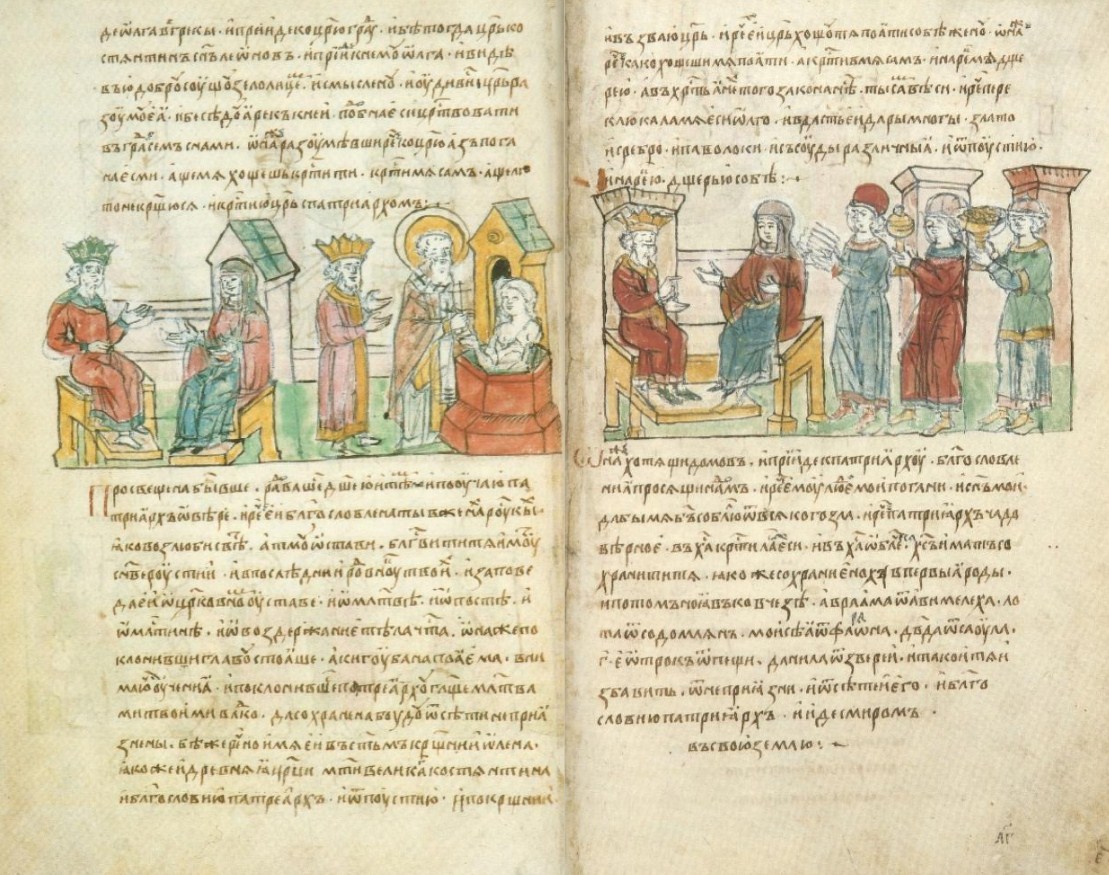 де ѡлга въ грекы · и прииде ко цр҃юграⷣ · и бѣ тогда цр҃ь ко
стѧнтинъ сн҃ъ леѡновъ · и прииⷣ к немꙋ ѡлга · и видѣ
въ ю добрꙋ соущꙋ зело лицеⷨ · и смысленꙋ · и оудивисѧ цр҃ь ра
зоумꙋ еѧ · и бесѣдова рекъ к неи · подобна еси црⷭ҇твовати
въ граⷣ семъ с нами · ѡна разоумѣвши реⷱ ко цр҃ю азъ пога
наѧ есми · аще мѧ хощешь крⷭ҇тити · крⷭ҇ти мѧ самъ · аще ли
то не крщюсѧ · и крⷭ҇ти ю цр҃ь с патриархомъ :
Просвещена бывше · радовашедшеюсѧ и поучаю па
триархъ ѡ вѣре · и реⷱ еи блгⷭ҇ословлена ты в женаⷯ роускыⷯ
ꙗко возлюби свѣⷮ · а тмоу ѡстави · блгⷭ҇вити тѧ имоуⷮ
сн҃ве роустии · и в послѣднии роⷣ внꙋⷦ твоиⷯ · и запове
да еи ѡ црⷪ҇ковноⷨ оуставе · и ѡ млт҃вѣ · и ѡ постѣ · и
ѡ млⷭ҇тнѣ · и ѡ воздержание тѣла чⷭ҇та · ѡна же по
клонивши главꙋ стоꙗше · аки гꙋба напаꙗема · вни
маю оучениꙗ · и поклонивше патреарху глщ҃е млт҃ва
ми твоими влⷣко · да сохранена боудꙋ ѿ сѣти неприꙗ
знены · бѣ же реⷱно имѧ еи въ ст҃мъ кр҃щнии илена ·
ꙗкоже и древнѧꙗ цр҃ци мт҃и великаⷢ костѧнтина
и блгⷭ҇ослови ю патреархъ · и ѿпоусти ю · и по кр҃щнии
и възва ю цр҃ь · и реⷱ еи цр҃ь хощю тѧ поѧти собѣ женꙋ · ѡна
реⷱ како хощеши мѧ поѧти · а крⷭ҇тивъ мѧ самъ · и нареⷱ мѧ дще
рею · а въ хрⷭ҇тьꙗнеⷯ того закона нѣⷭ · ты саⷨ вѣси · и реⷱ пере
клюкала мѧ еси ѡлго · и вдасть еи дары многы · злато
и сребро · и паволоки · и съсоуды различныꙗ · и ѿпоусти ю ·
и нареⷱ ю дщерью собѣ :
Ѡна же хотѧщи домовъ · и прииде к патриархоу · блгⷭ҇ословле
ниꙗ просѧщи на доⷨ · и реⷱ емоу людⷤе мои погани · и сн҃ъ мои ·
дабы мѧ бъ҃ съблюлъ ѿ всѧкого зла · и реⷱ патриархъ чадо
вѣрное · въ хаⷭ крⷭ҇тиласѧ еси · и въ хаⷭ ѡблеⷱсѧ · хсⷭъ имать сѧ
хранити тѧ · ꙗкоже сохрани еноха в первыꙗ роды ·
и потомъ ноꙗ въ ковчезѣ · авраама ѿ авимелеха · ло
та ѿ содомлѧнъ · моисѣꙗ ѿ фараѡна · дв҃да ѿ саоула ·
г҃ · е ѿтрокъ ѿ пещи · данила ѿ зверии · и тако и тѧ и
збавить · ѿ неприꙗзни · и ѿ сѣтеи его · и блгⷭ҇о
слови ю патриархъ · и иде с миромъ ·
въ свою землю :